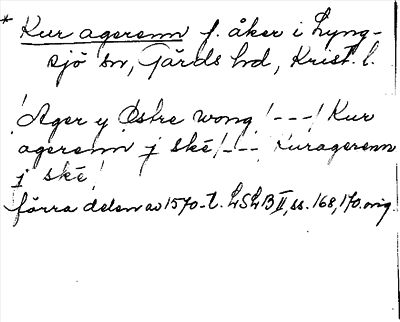 * Kur agerenn f. åker i Lyng-
sjö sn, Gärds hd, Krist. l.
! Ager y Østre wong ! --- ! Kur
agerenn j skē ! --- Kuragerenn
j skē !
förra delen av 1570-t. LSLB II, ss. 168, 170. orig.